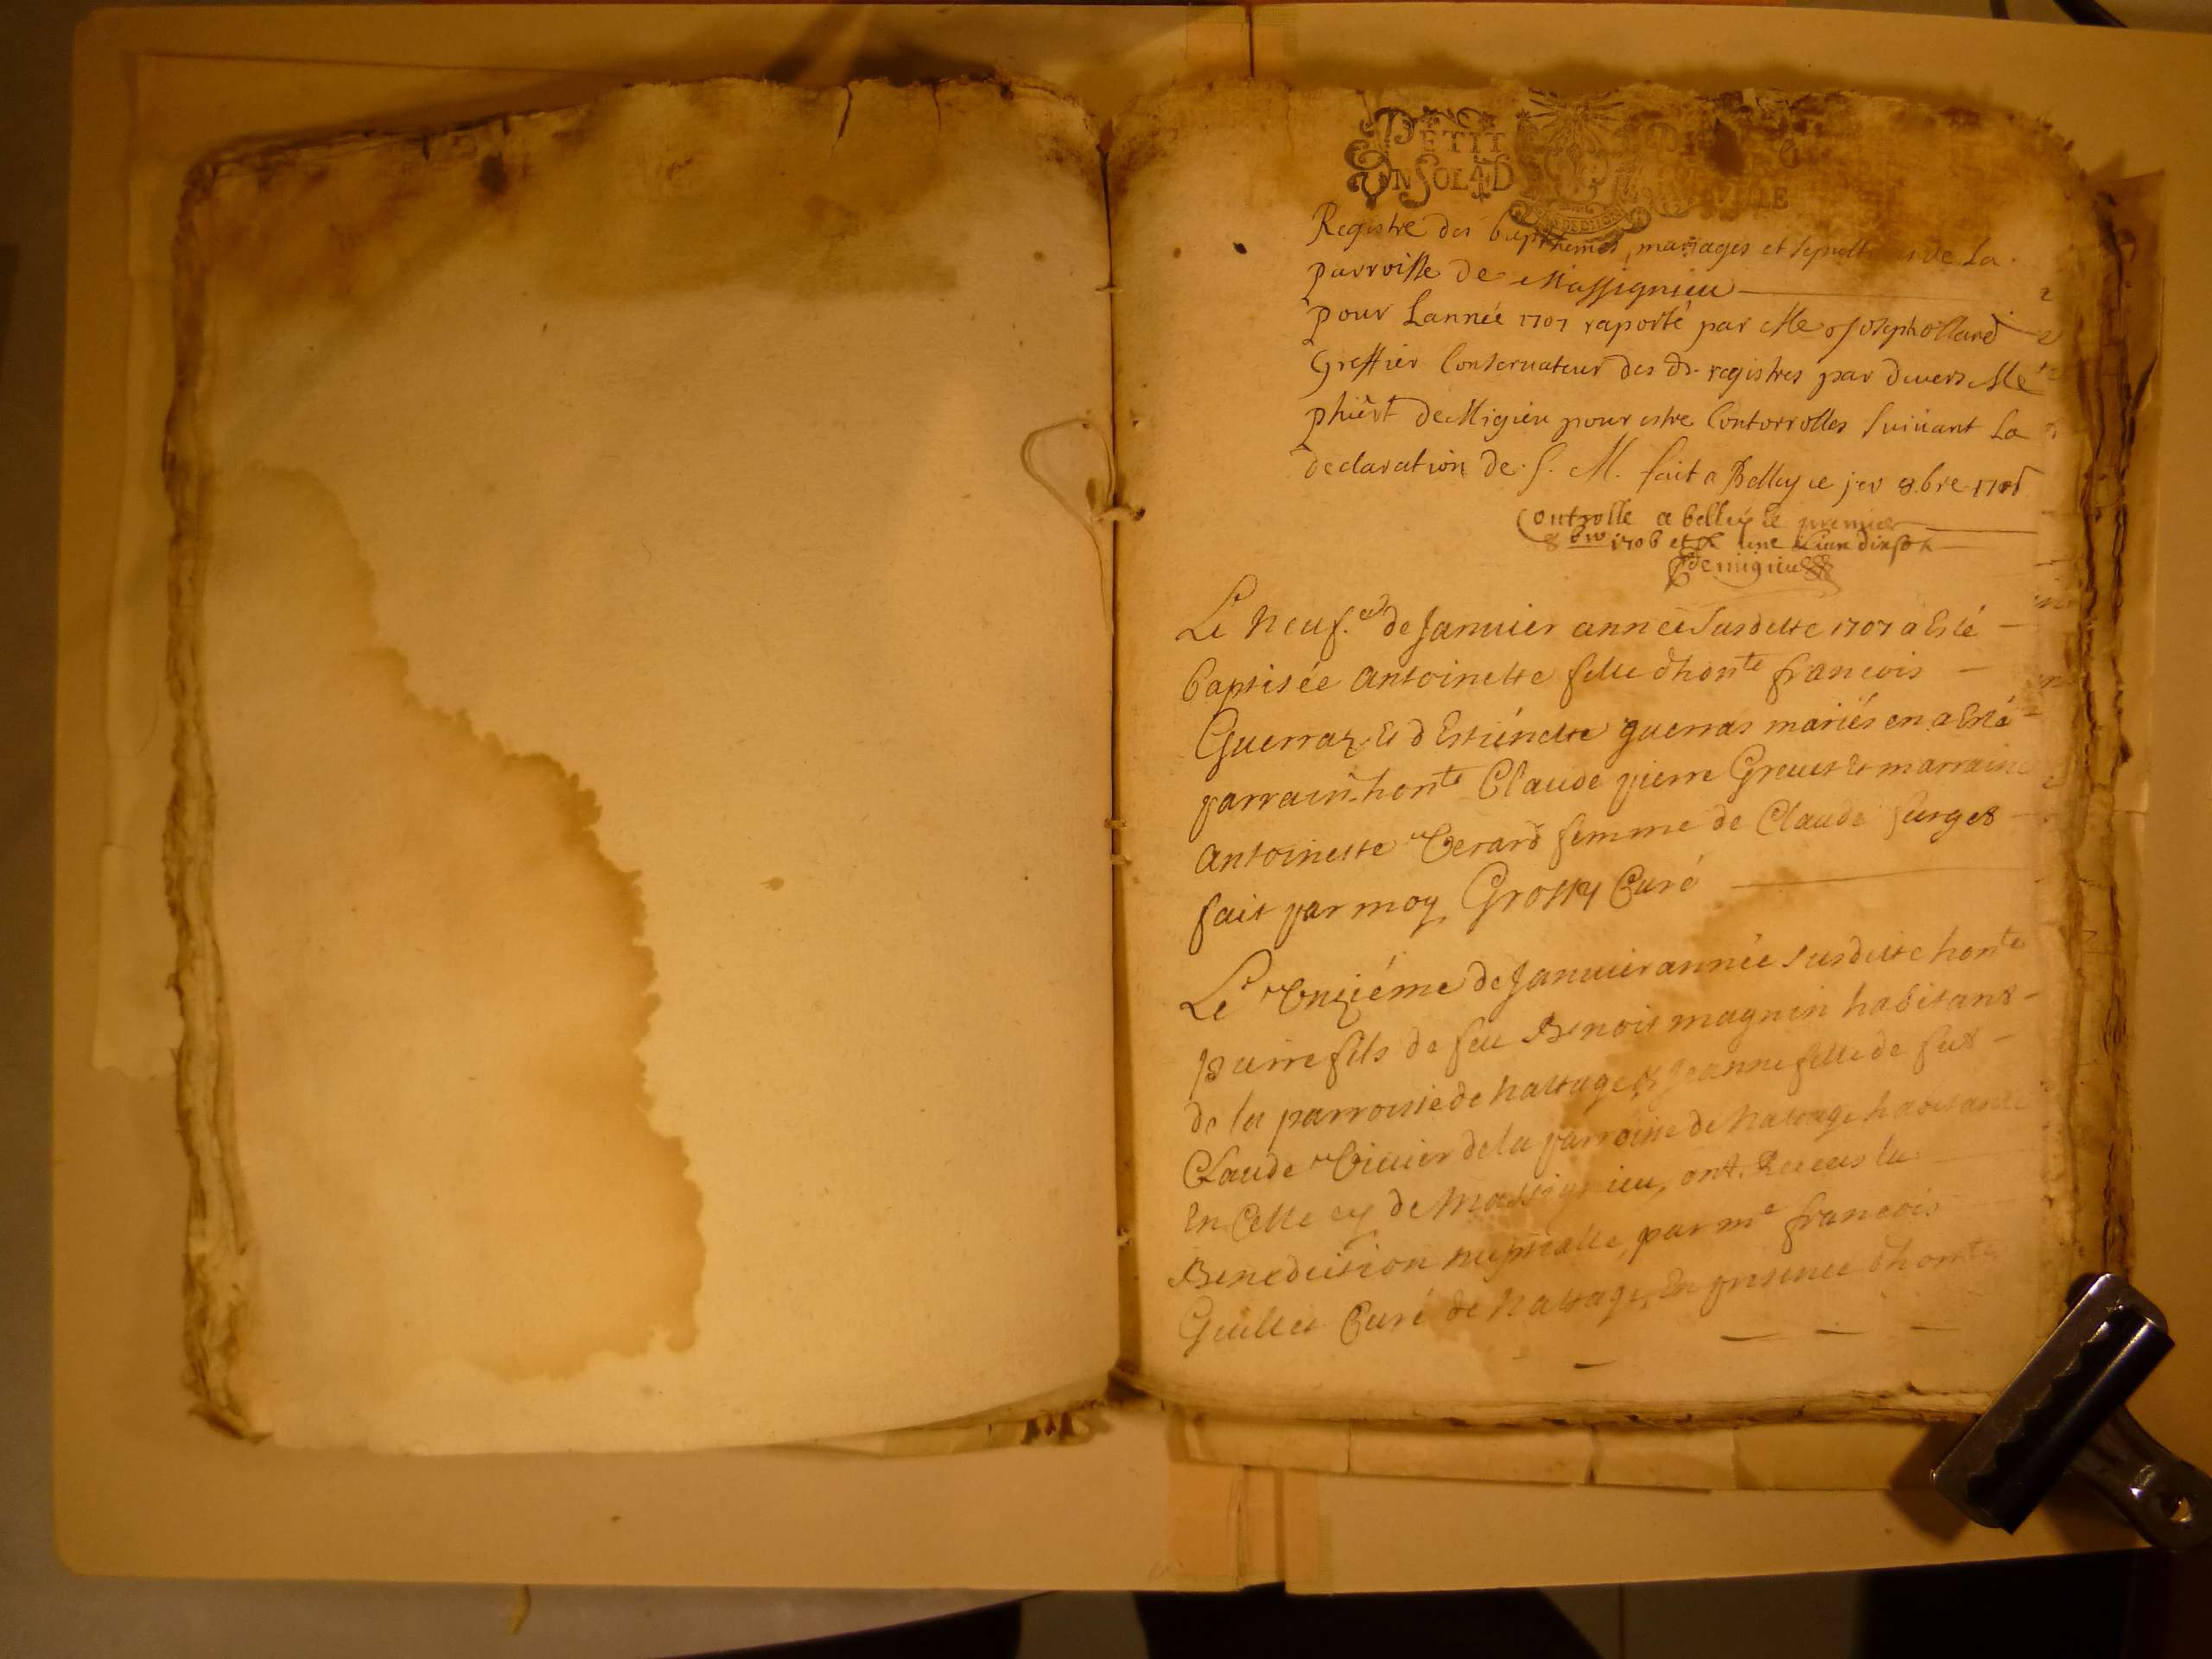 PETIT
UN SOL 4 D
Registre des bapthemes, mariages et sepult de La
parroisse de Massignieu
pour Lannée 1707 raporté par Me Joseph ollard
Greffier Conservateur des ds. registres par devers Me
phibt De Migieu pour estre Contorrolles suivant La
declaration de S. M. fait a Belley ce jer 8.bre 1706
Controlle a belley le premier
8bre 1706 et
Demigieu
Le neuf.e de Janvier année susditte 1707 a Esté
baptisée antoinette fille d'honte francois
Guerraz Et d Estiénette guerras mariés en a Esté
parrain honte Claude pierre Greuet Et marraine
antoinette Verard femme de Claude furges
fait par moy Grossy Curé
Le Onziéme de Janvier année susditte honte
pierre fils de feu Benoit magnin habitant
de la parroisse de nattage, & Jeanne fille de fut
Claude Vivier de la parroisse de nattage habitante
En Celle cy de Massignieu, ont Receus la
Benediction nuptialle, par me francois
Guillet Curé de nattage, En presence d'honte